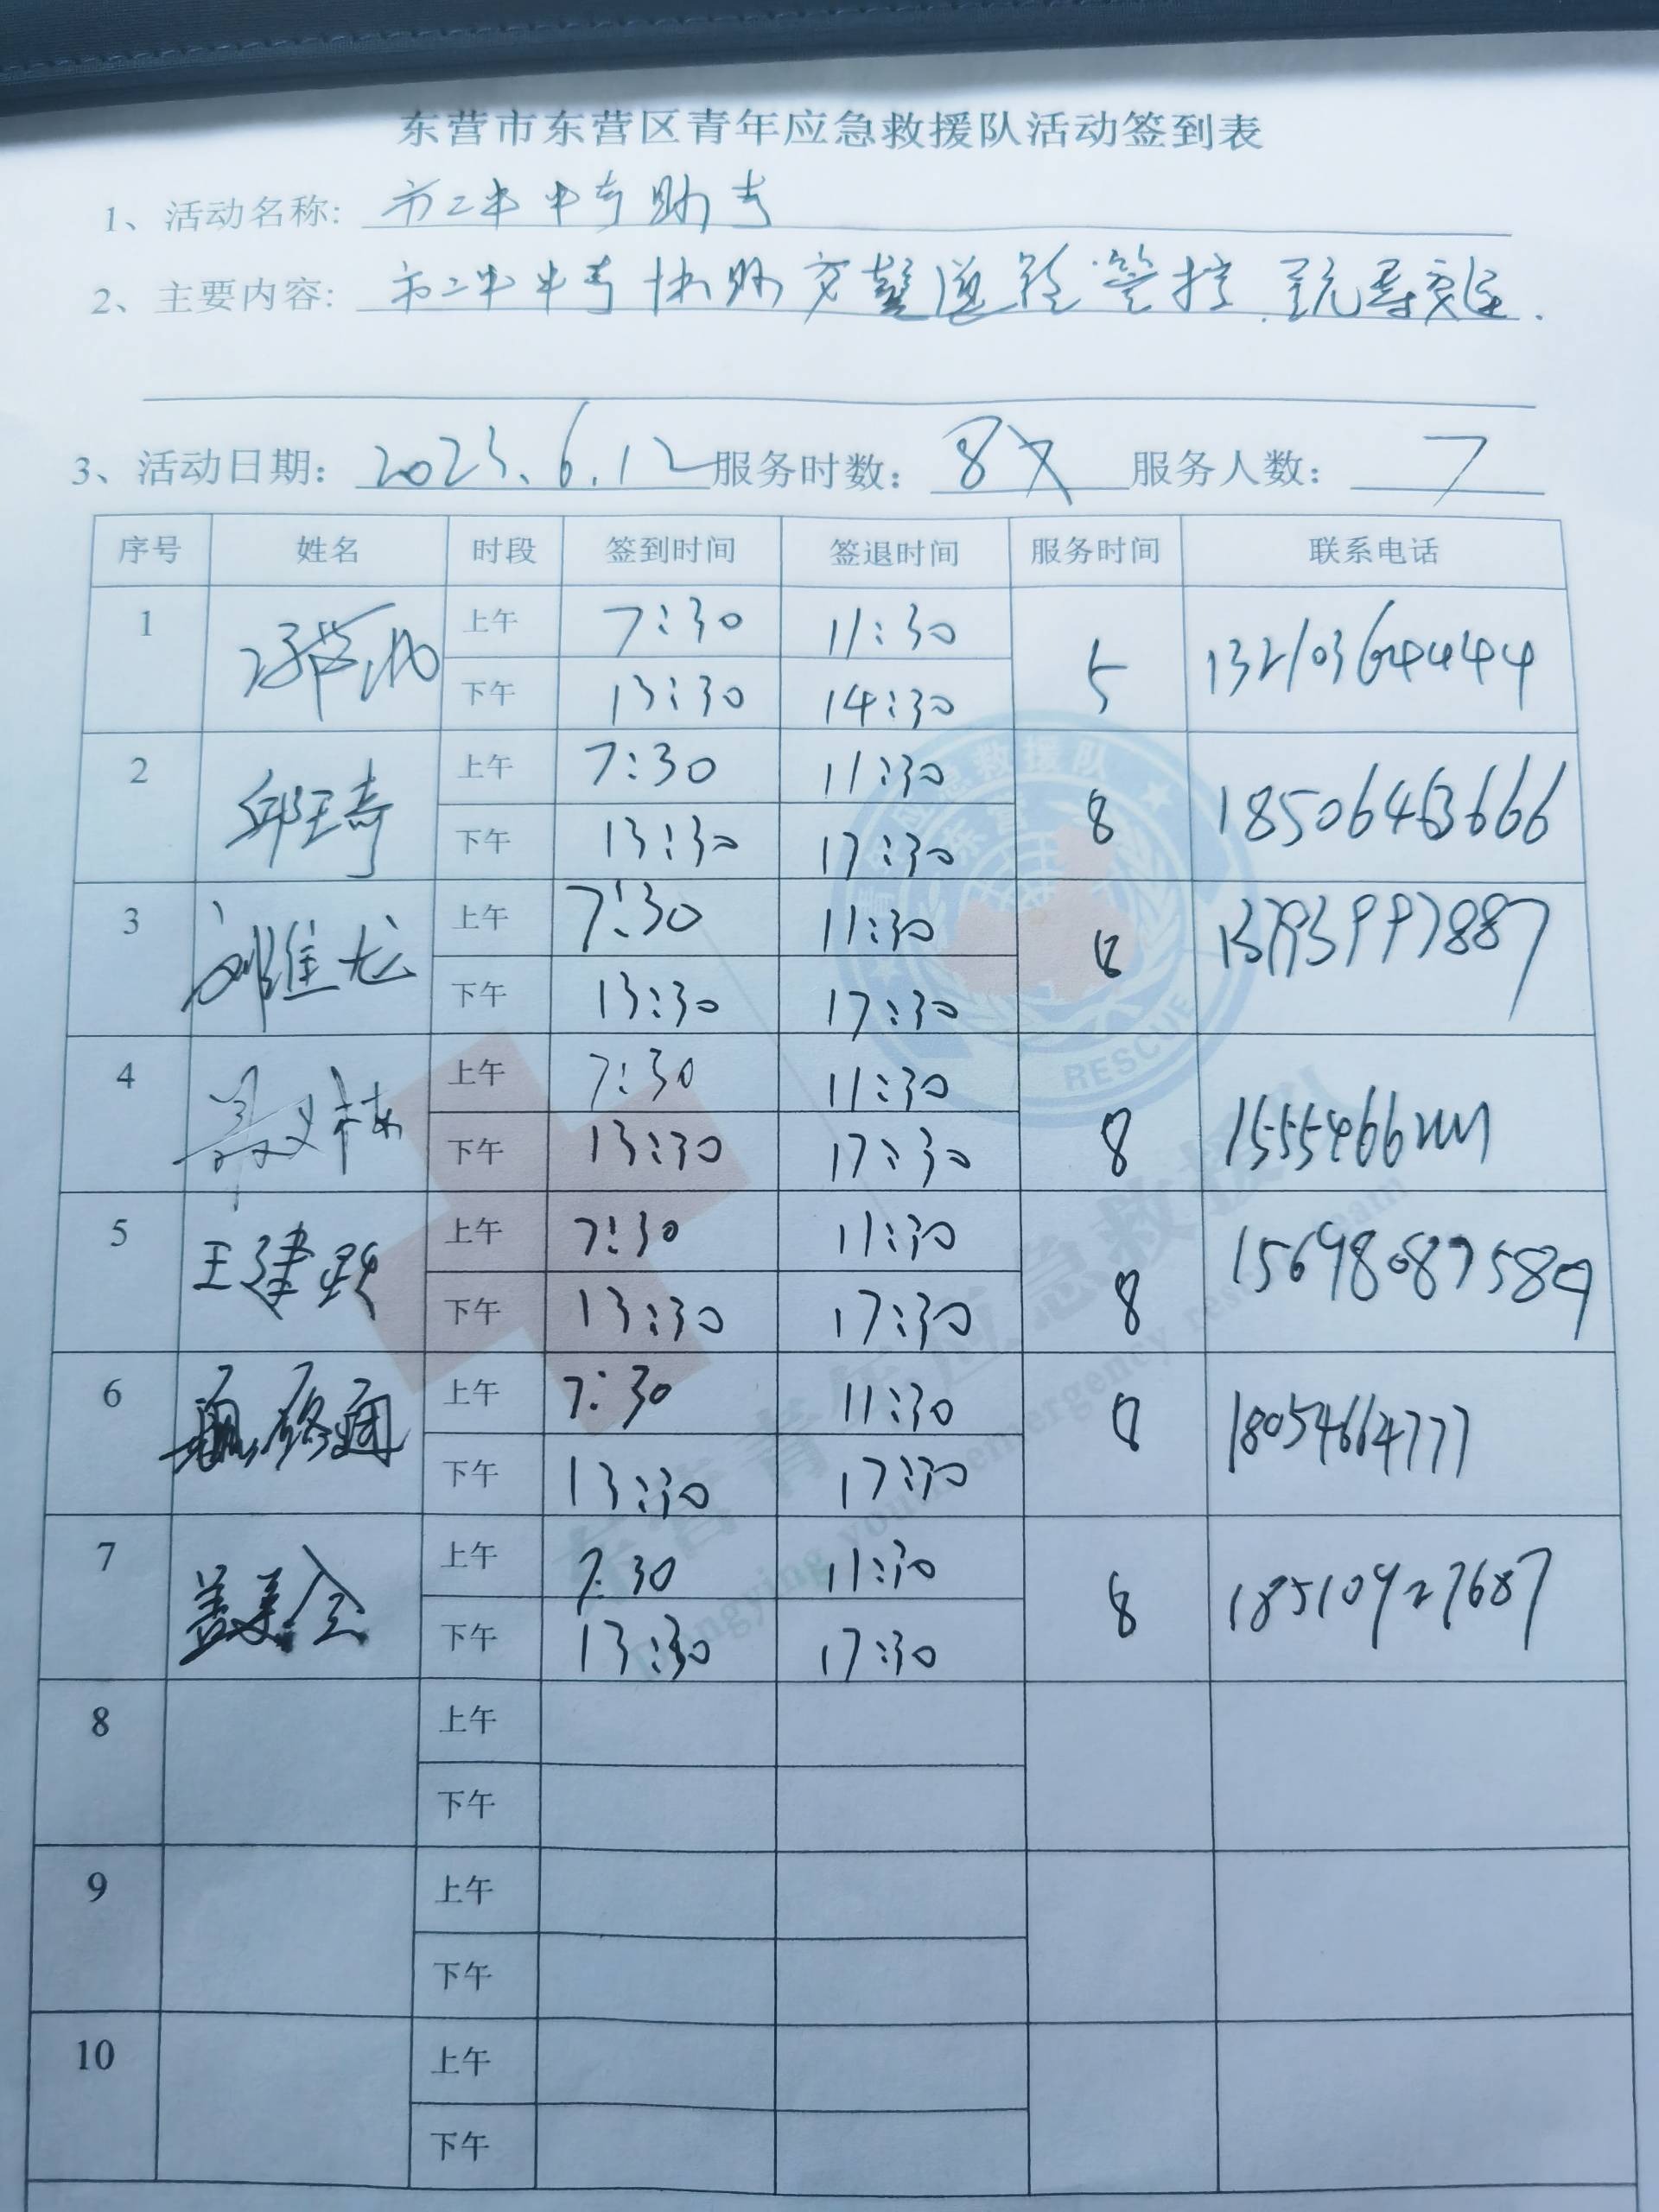 东营市东营区青年应急救援队活动签到表
1、活动名称: 市二中中考助考
2、主要内容: 市二中中考协助交警道路管控.疏导交通.
3、活动日期: 2023.6.12 服务时数: 8 服务人数: 7
序号 姓名 时段 签到时间 签退时间 服务时间 联系电话
1 上午 7:30 11:30 5 13210364444
下午 13:30 14:30
2 邱玉奇 上午 7:30 11:30 8
下午 13:30 17:30
3 刘维龙 上午 7:30 11:30 8
下午 13:30 17:30
4 上午 7:30 11:30 8
下午 13:30 17:30
5 王建 上午 7:30 11:30 8 15698087589
下午 13:30 17:30
6 上午 7:30 11:30 8 18054664777
下午 13:30 17:30
7 盖美全 上午 7:30 11:30 8 18510927687
下午 13:30 17:30
8 上午
下午
9 上午
下午
10 上午
下午
RESCUE
东营青年应急救援队
Dongying youth emergency rescue team